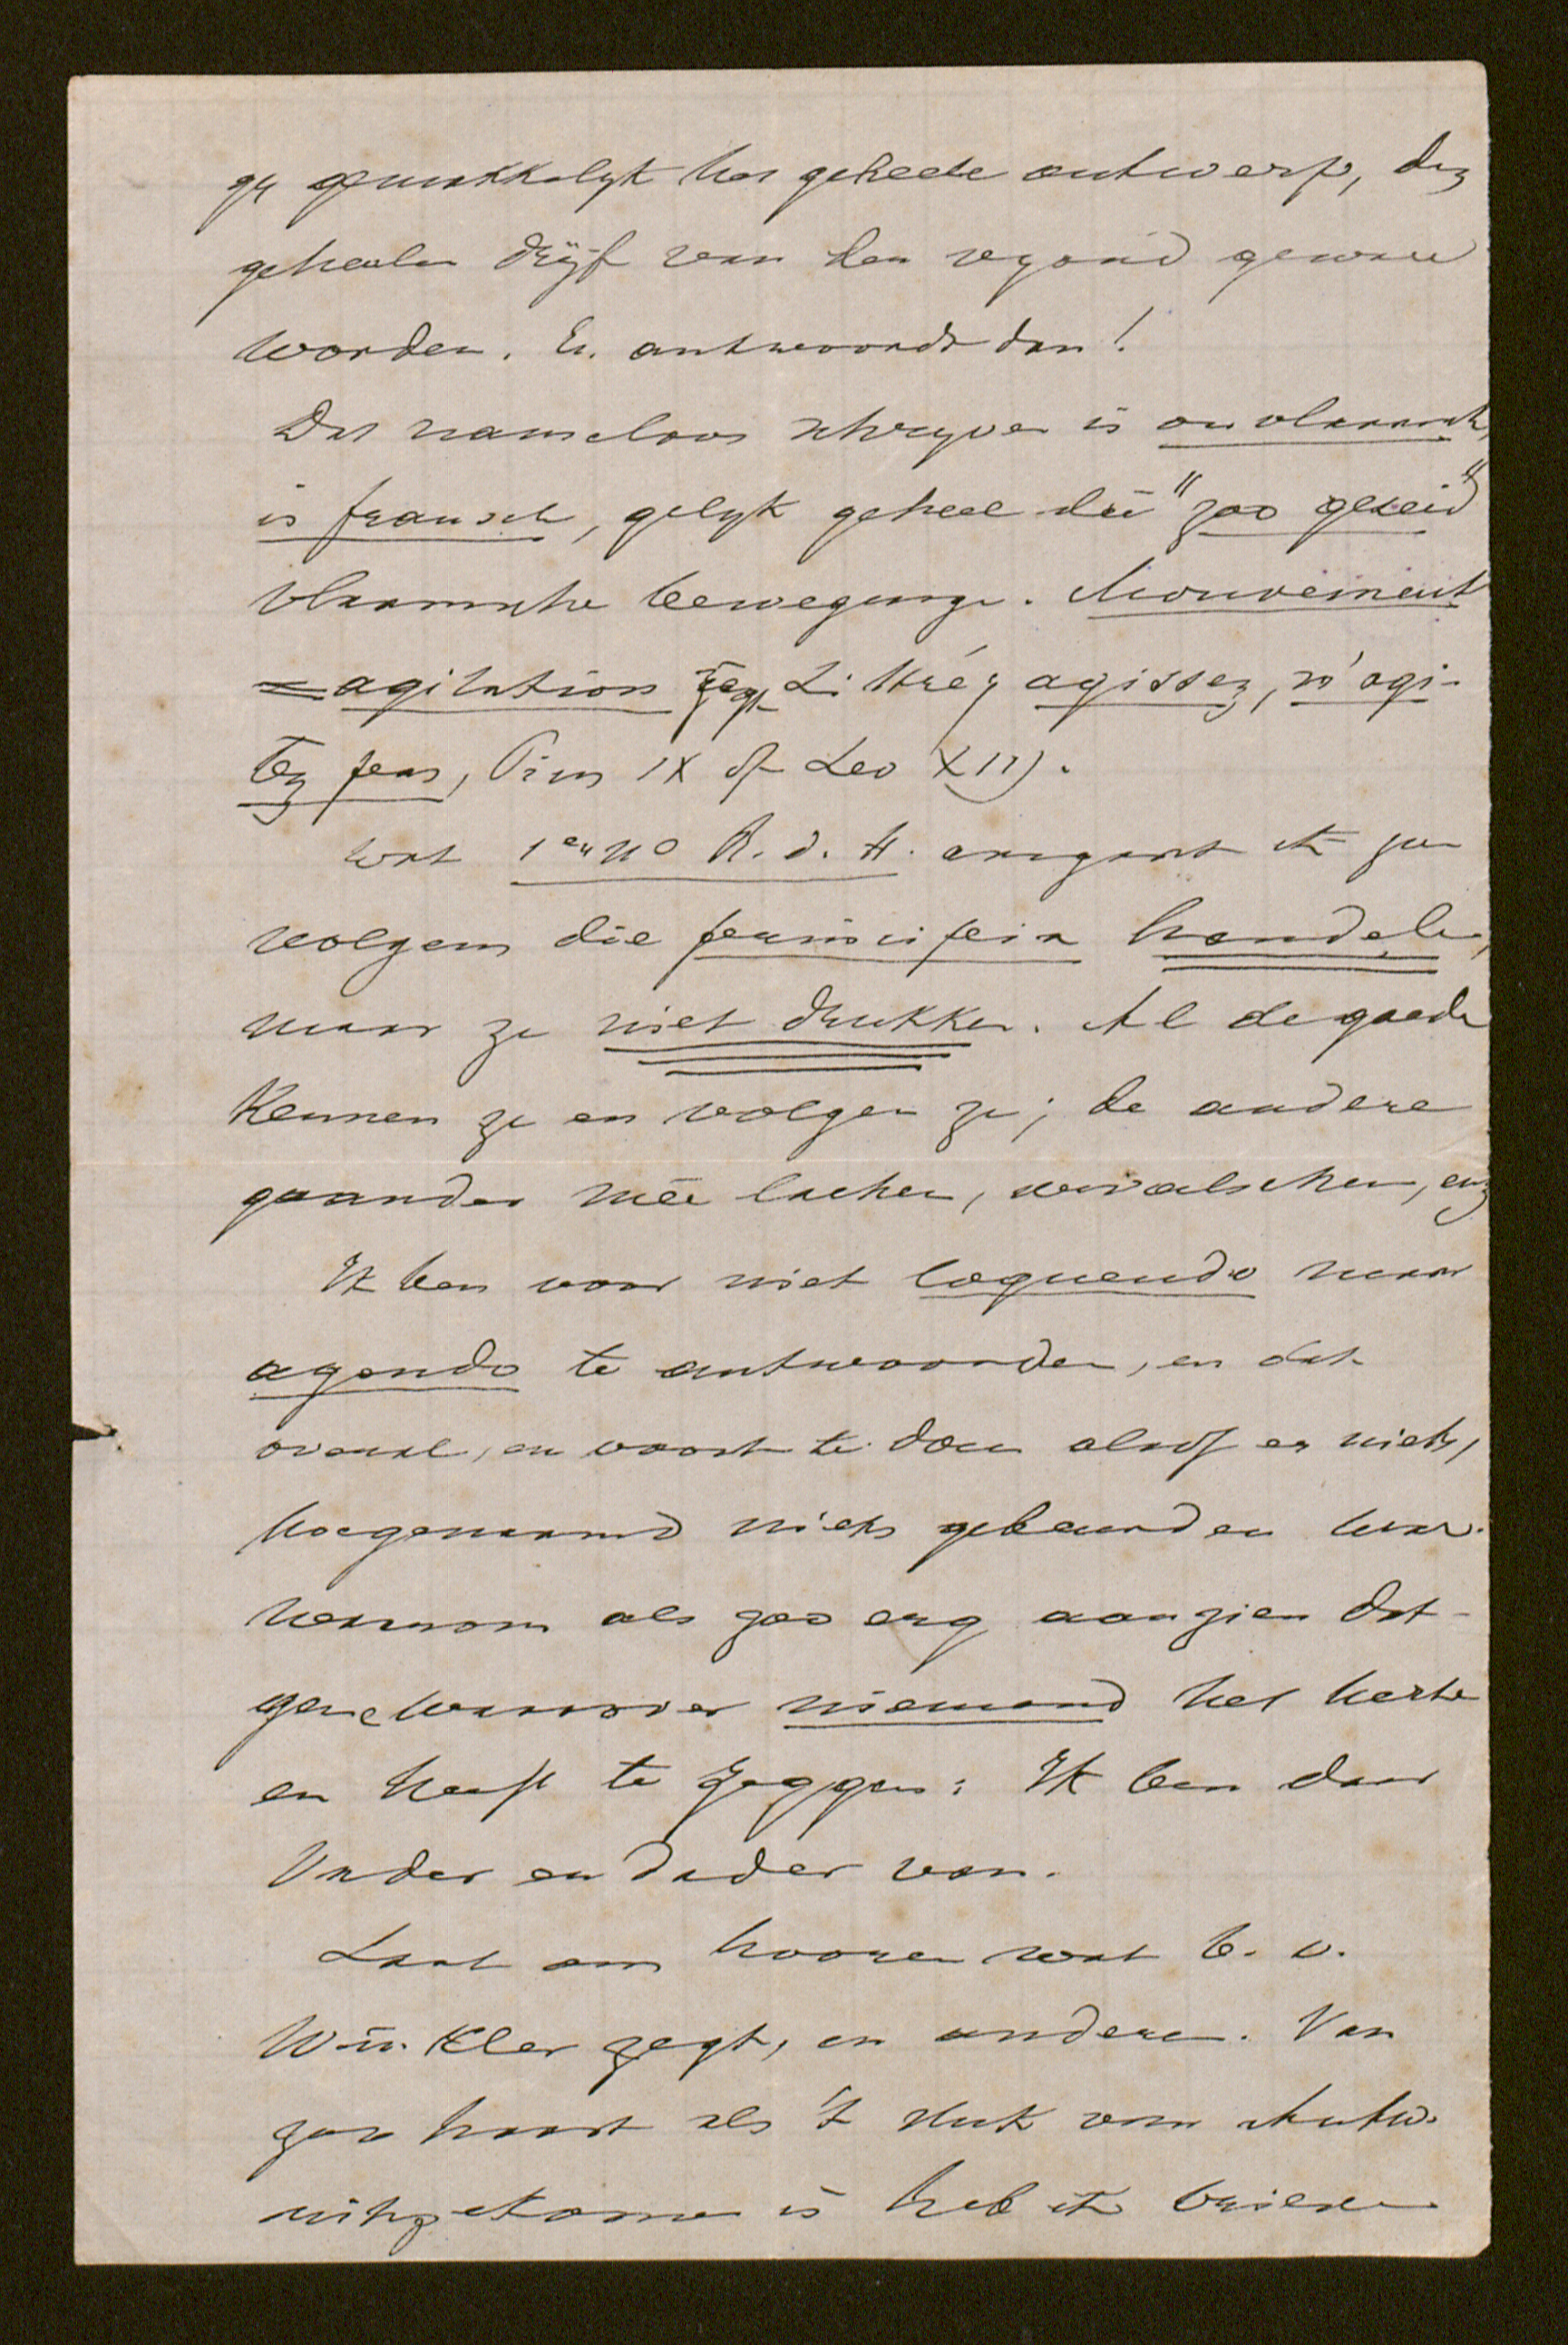 gy gemakkelyk het geheele ontwerp, den
geheelen dryf van den vyand gewaar
worden. En antwoordt dan!
Dat nameloos schryven is onvlaamsch,
is fransch, gelyk geheel die "zoo gezeid"
vlaamsche beweginge. Mouvement
= agitation zegt Littré; agissez, n'agi-
tez pas, Pius IX of Leo XIII.
Wat 1en No R. d. H. aangaat ik zou
volgens die principien handelen,
maar ze niet drukken. Al de goede
kennen ze en volgen ze; de andere
gaander meê lachen, vervalschen, enz
Ik ben voor niet loquendo maar
agendo te antwoorden, en dat
overal, en voort te doen alsof er niets,
hoegenaamd niets gebeurd en waar.
Waarom als zoo erg aanzien dat-
gene waarover niemand het herte
en heeft te zeggen: Ik ben daar
Vader en dader van.
Laat ons hooren wat b. v.
Winkler zegt, en andere. Van
zoo haast als 't stuk van Antw.
uitgekomen is heb ik brieven